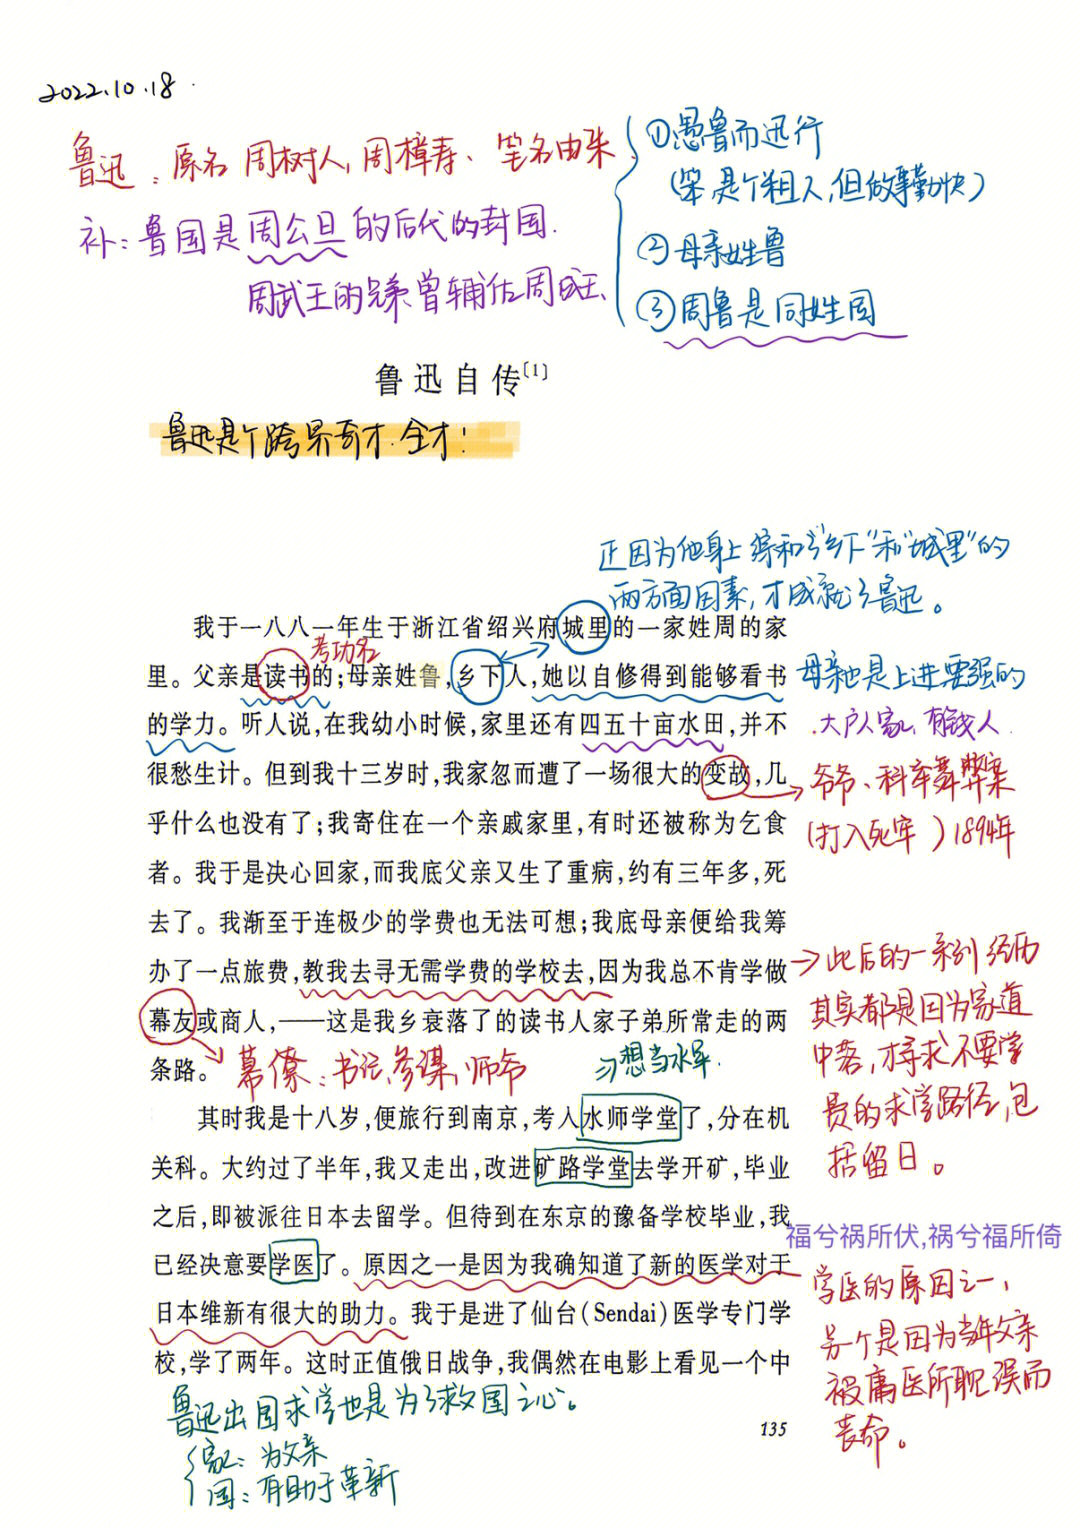 2022.10.18
鲁迅：原名 周树人、周樟寿、笔名由来
①愚鲁而迅行
(笨 是个粗人,但做事勤快)
②母亲姓鲁
③周鲁是同姓国
补：鲁国是周公旦的后代的封国.
周武王的兄弟曾辅佐周成王、
鲁迅自传〔1〕
鲁迅是个跨界奇才.全才!
正因为他身上综和了“乡下”和“城里”的
两方面因素,才成就了鲁迅。
我于一八八一年生于浙江省绍兴府城里的一家姓周的家
考功名
里。父亲是读书的;母亲姓鲁,乡下人,她以自修得到能够看书
母亲也是上进要强的
的学力。听人说,在我幼小时候,家里还有四五十亩水田,并不
.大户人家、有钱人.
很愁生计。但到我十三岁时,我家忽而遭了一场很大的变故,几
爷爷、科举舞弊案
乎什么也没有了;我寄住在一个亲戚家里,有时还被称为乞食
(打入死牢 )1894年
者。我于是决心回家,而我底父亲又生了重病,约有三年多,死
去了。我渐至于连极少的学费也无法可想;我底母亲便给我筹
办了一点旅费,教我去寻无需学费的学校去,因为我总不肯学做
幕友或商人,——这是我乡衰落了的读书人家子弟所常走的两
条路。
→此后的一系列经历
其实都是因为家道
中落,才寻求不要学
费的求学路径,包
括留日。
幕僚：书记,参谋,师爷
想当水军.
其时我是十八岁,便旅行到南京,考入水师学堂了,分在机
关科。大约过了半年,我又走出,改进矿路学堂去学开矿,毕业
之后,即被派往日本去留学。但待到在东京的豫备学校毕业,我
已经决意要学医了。原因之一是因为我确知道了新的医学对于
日本维新有很大的助力。我于是进了仙台(Sendai)医学专门学
校,学了两年。这时正值俄日战争,我偶然在电影上看见一个中
福兮祸所伏,祸兮福所倚
学医的原因之一,
另个是因为当年父亲
被庸医所耽误而
丧命。
鲁迅出国求学也是为了救国之心。
家：为父亲
国：有助于革新
135